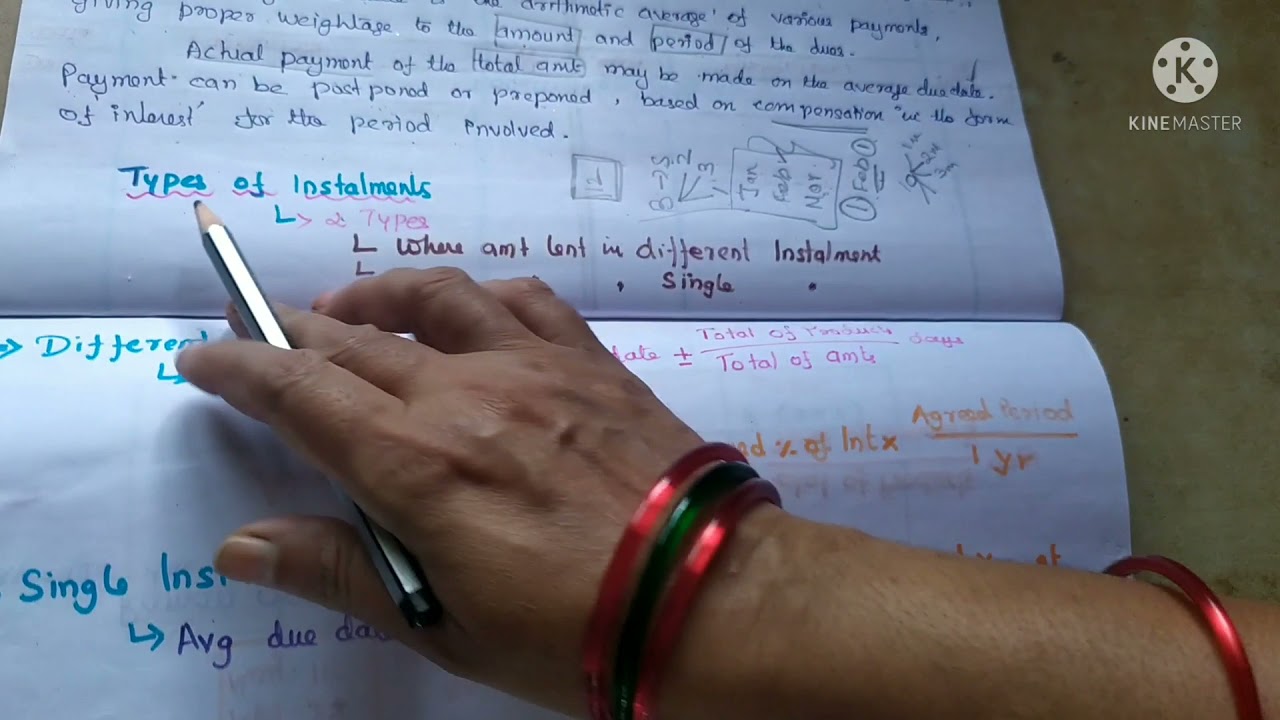 giving proper weightage to the amount and period of the dues.
arithmetic average' of various payments,
Actual payment of the total amt may be made on the average due date.
Payment can be postponed or preponed, based on compensation "in the form
of interest' for the period involved.
Types of Instalments
2 Types
Where amt lent in different Instalment
Single
Jan
Feb
① Feb ①
KINEMASTER
Different
date ± Total of Products days
Total of amts
% of Int x Agreed Period
1 yr
Single Inst
Avg due da